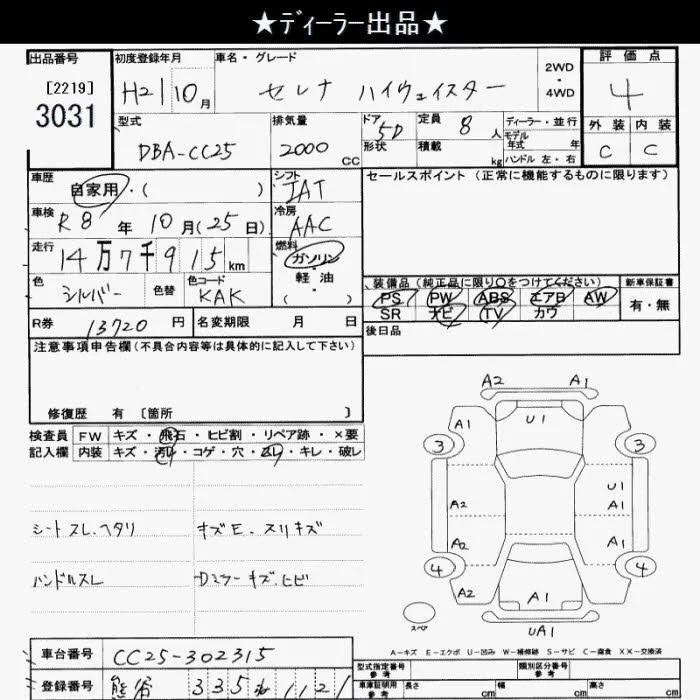 ★ディーラー出品★
出品番号 初度登録年月 車名・グレード 評価点
[2219] H21 10月 セレナ ハイウェイスター 2WD・4WD 4
3031
型式 排気量 ドア 定員 8人 ディーラー・並行 外装 内装
DBA-CC25 2000CC 5D 形状 積載 kg モデル年式 年 C C
ハンドル 左・右
車歴 自家用・( ) シフト IAT セールスポイント (正常に機能するものに限ります)
車検 R8年10月(25日) 冷房 AAC
走行 14万7千915km 燃料 ガソリン・軽油・( )
色 シルバー 色替 色コード KAK
装備品 (純正品に限り○をつけてください) 新車保証書
PS PW ABS エアB AW 有・無
SR ナビ TV カワ
R券 13720円 名変期限 月 日 後日品
注意事項申告欄 (不具合内容等は具体的に記入して下さい)
修復歴 有 [箇所 ]
検査員 FW キズ・飛石・ヒビ割・リペア跡・×要
記入欄 内装 キズ・汚レ・コゲ・穴・スレ・キレ・破レ
A2 A1
A1 U1
3 3
U1
A2 A1
A2 A1
4 4
A2 A1
スペア UA1
シートスレ.ヘタリ キズE.スリキズ
ハンドルスレ Dミラーキズ.ヒビ
A-キズ E-エクボ U-凹み W-補修跡 S-サビ C-腐食 XX-交換済
車台番号 CC25-302315
登録番号 熊谷 335 1121
型式指定番号 参考 類別区分番号 参考
車庫証明用 参考 長さ cm 幅 cm 高さ cm